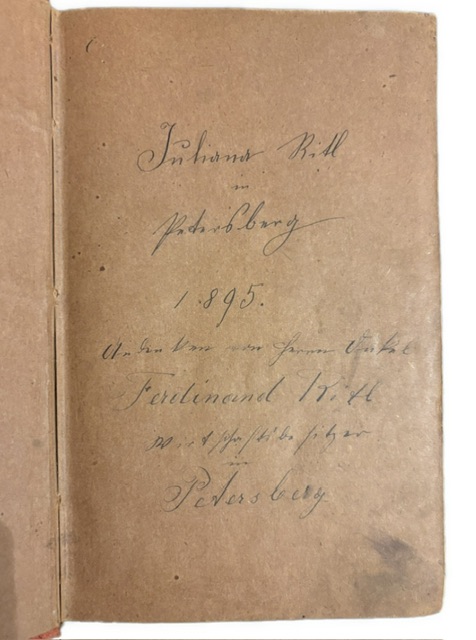 Juliana Ritl
in
Petersberg
1895.
Andenken von Herrn Onkel
Ferdinand Ritl
Wirtschaftsbesitzer
in
Petersberg